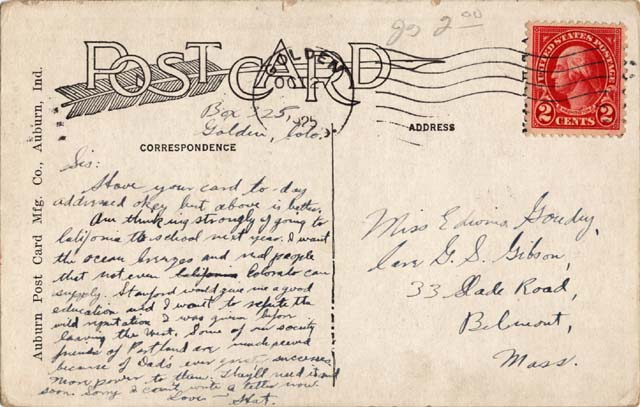 Jo 2.00
POST CARD
GOLDEN
OCT
1925
UNITED STATES POSTAGE
2 CENTS 2
Box 325,
Golden, Colo.
CORRESPONDENCE
ADDRESS
Auburn Post Card Mfg. Co., Auburn, Ind.
Sis:
Have your card to-day
addressed okey but above is better.
Am thinking strongly of going to
California to school next year. I want
the ocean breezes and red people
that not even California Colorado can
supply. Stanford would give me a good
education and I want to refute the
wild reputation I was given before
leaving the West. Some of our society
friends of Portland are much peeved
because of Dad's ever great successes
More power to them. They'll need it and
soon. Sorry I can't write a letter now
Love - Hat.
Miss Edwina Goudy,
Care G. S. Gibson,
33 Slade Road,
Belmont,
Mass.